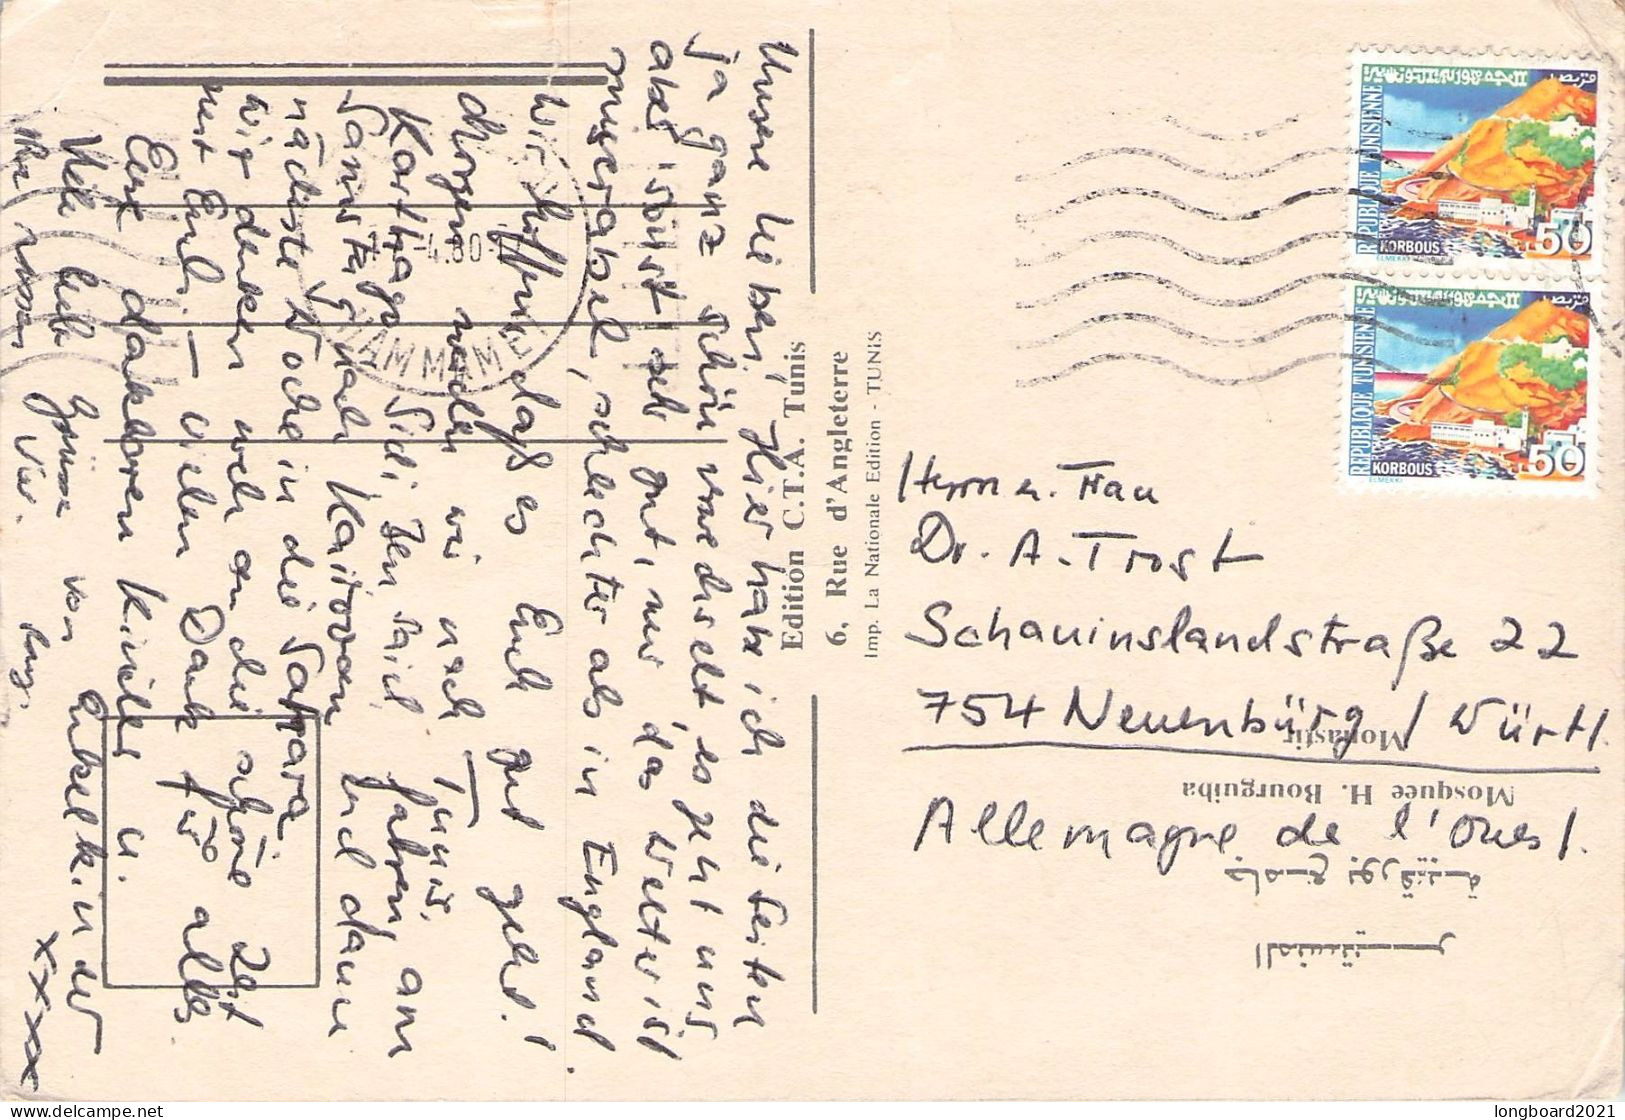 Unsere lieben, Hier habe ich die Seiten
ja ganz schön verwechselt, es geht uns
aber sonst sehr gut, nur das Wetter ist
miserabel, schlechter als in England.
Wir hoffen, daß es Euch gut geht!
Morgen wollen wir nach Tunis,
Karthago, Sidi Ben Said fahren, am
Samstag nach Kairouan und dann
nächste Woche in die Sahara.
Wir denken noch an die schöne Zeit
mit Euch. – Vielen Dank für alles
Eure dankbaren Kinder u.
Enkelkinder
Viele liebe Grüsse von
xxxx
4.80
HAMMAMET
Edition C.T.A. Tunis
6, Rue d'Angleterre
Imp. La Nationale Edition - TUNIS
REPUBLIQUE TUNISIENNE
KORBOUS
50
ELMEKKI
REPUBLIQUE TUNISIENNE
KORBOUS
50
ELMEKKI
Herrn u. Frau
Dr. A. Trost
Schauinslandstraße 22
754 Neuenbürg / Württ.
Allemagne de l'Ouest.
Monastir
Mosquee H. Bourguiba
جامع بورقيبة
المنستير
longboard2021